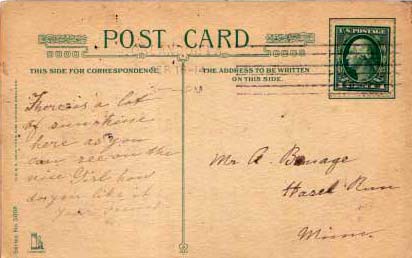 POST CARD.
U.S. POSTAGE
THIS SIDE FOR CORRESPONDENCE.
THE ADDRESS TO BE WRITTEN
ON THIS SIDE.
There is a lot
of sunshine
here as you
can see on the
nice Girl how
do you like it
your friend
Mr A. Benage
Hazel Run
Minn.
Series No.